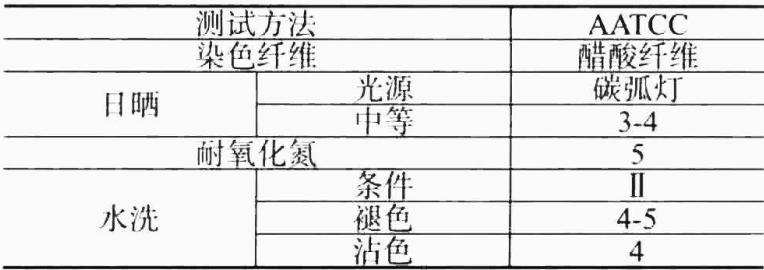 测试方法 AATCC
染色纤维 醋酸纤维
日晒 光源 碳弧灯
中等 3-4
耐氧化氮 5
水洗 条件 Ⅱ
褪色 4-5
沾色 4